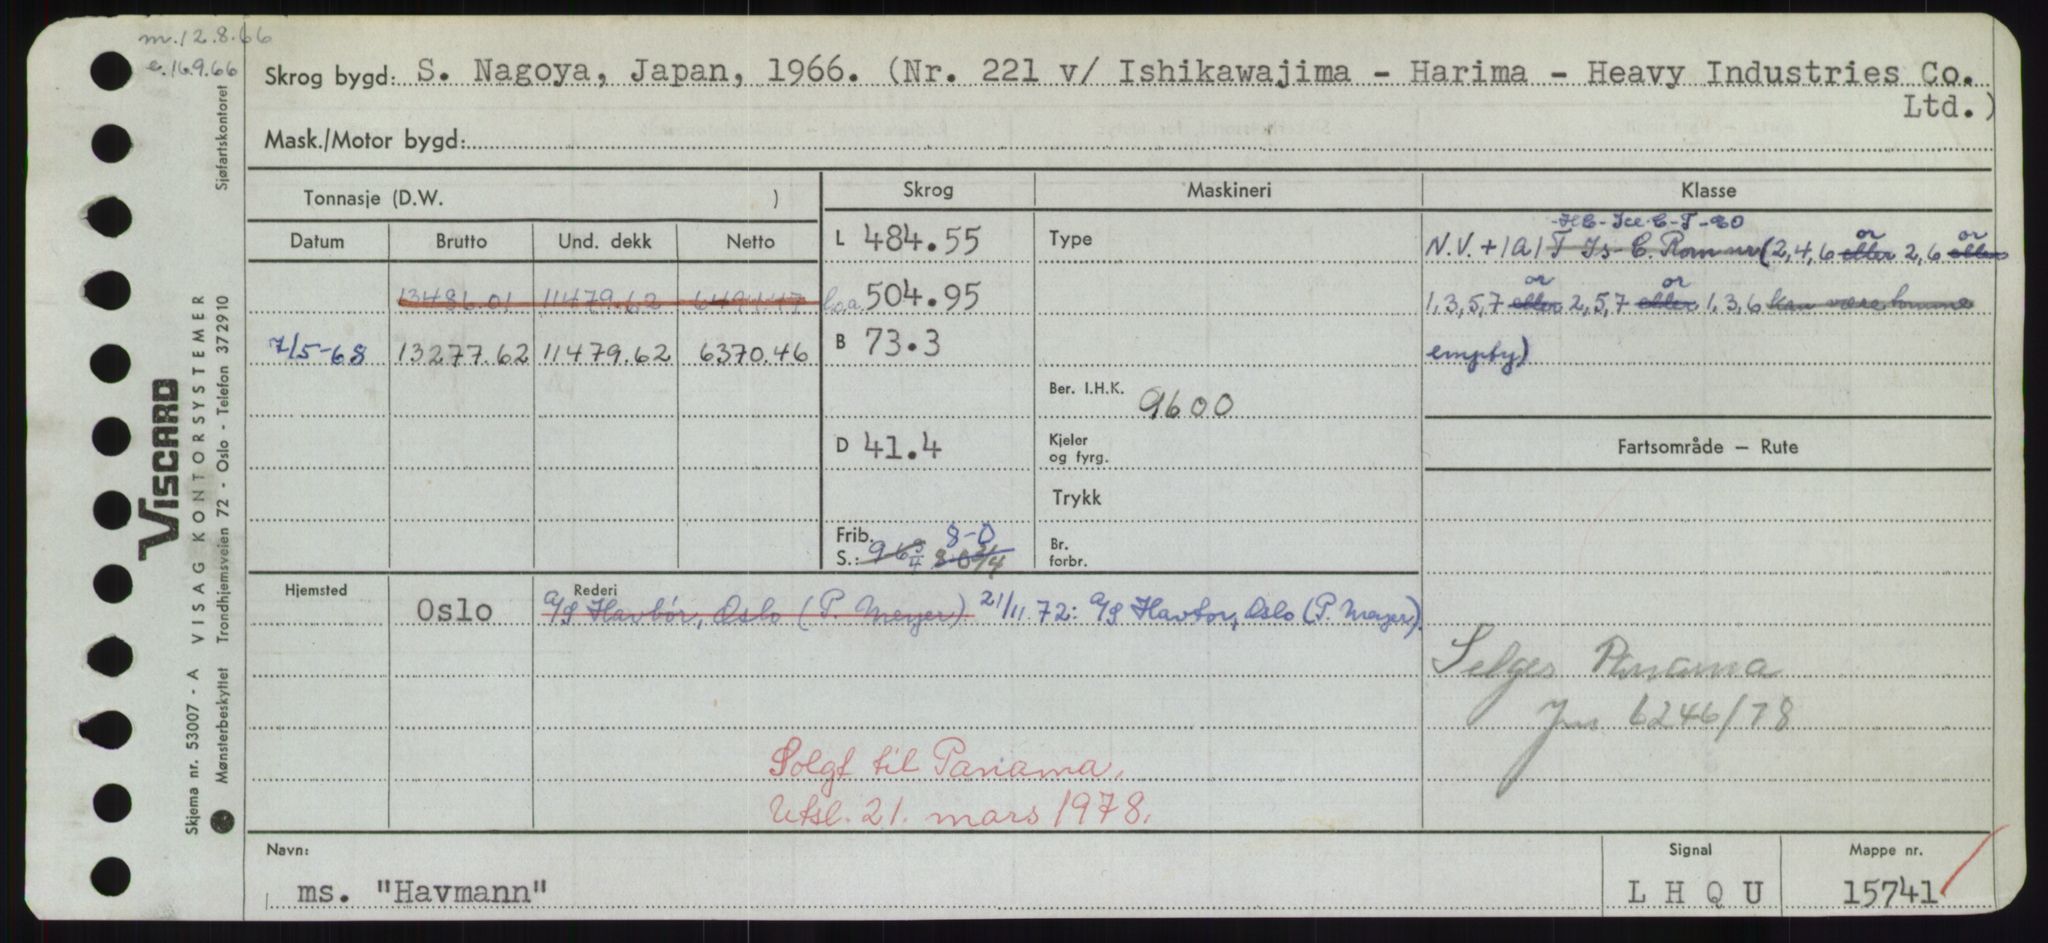 m. 12.8.66
e. 16.9.66
Skrog bygd: S. Nagoya, Japan, 1966. (Nr. 221 v/ Ishikawajima - Harima - Heavy Industries Co. Ltd.)
Mask./Motor bygd:
Tonnasje (D.W. )
Skrog
Maskineri
Klasse
Datum Brutto Und. dekk Netto
L 484.55
Type
-HC-Ice-C-T-EO
N.V. +1A1 T Is-C. Rom nr (2,4,6 eller or 2,6 eller or
13486.01 11479.62 6491.47
l.o.a. 504.95
1,3,5,7 eller or 2,5,7 eller or 1,3,6 kan være tomme
7/5-68 13277.62 11479.62 6370.46
B 73.3
empty)
Ber. I.H.K. 9600
D 41.4
Kjeler og fyrg.
Fartsområde – Rute
Trykk
Frib. 8-0
S.: 9 6 3/4 8-0 3/4
Br. forbr.
Hjemsted
Oslo
Rederi
A/S Havbør, Oslo (P. Meyer). 21/11.72: A/S Havtor, Oslo (P. Meyer).
Selges Panama
Jnr 6246/78
Solgt til Panama.
Utsl. 21. mars 1978.
Navn:
ms. "Havmann"
Signal
L H Q U
Mappe nr.
15741
VISCARD
VISAG KONTORSYSTEMER
Skjema nr. 53007 - A
Mønsterbeskyttet Trondhjemsveien 72 - Oslo - Telefon 372910 Sjøfartskontoret